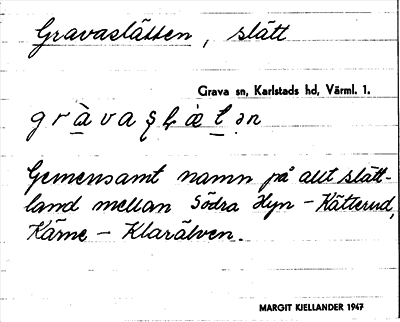 Gravaslätten, slätt
Grava sn, Karlstads hd, Värml. l.
Gemensamt namn på allt slätt-
land mellan Södra Hyn - Kätterud,
Kärne - Klarälven.
MARGIT KJELLANDER 1947